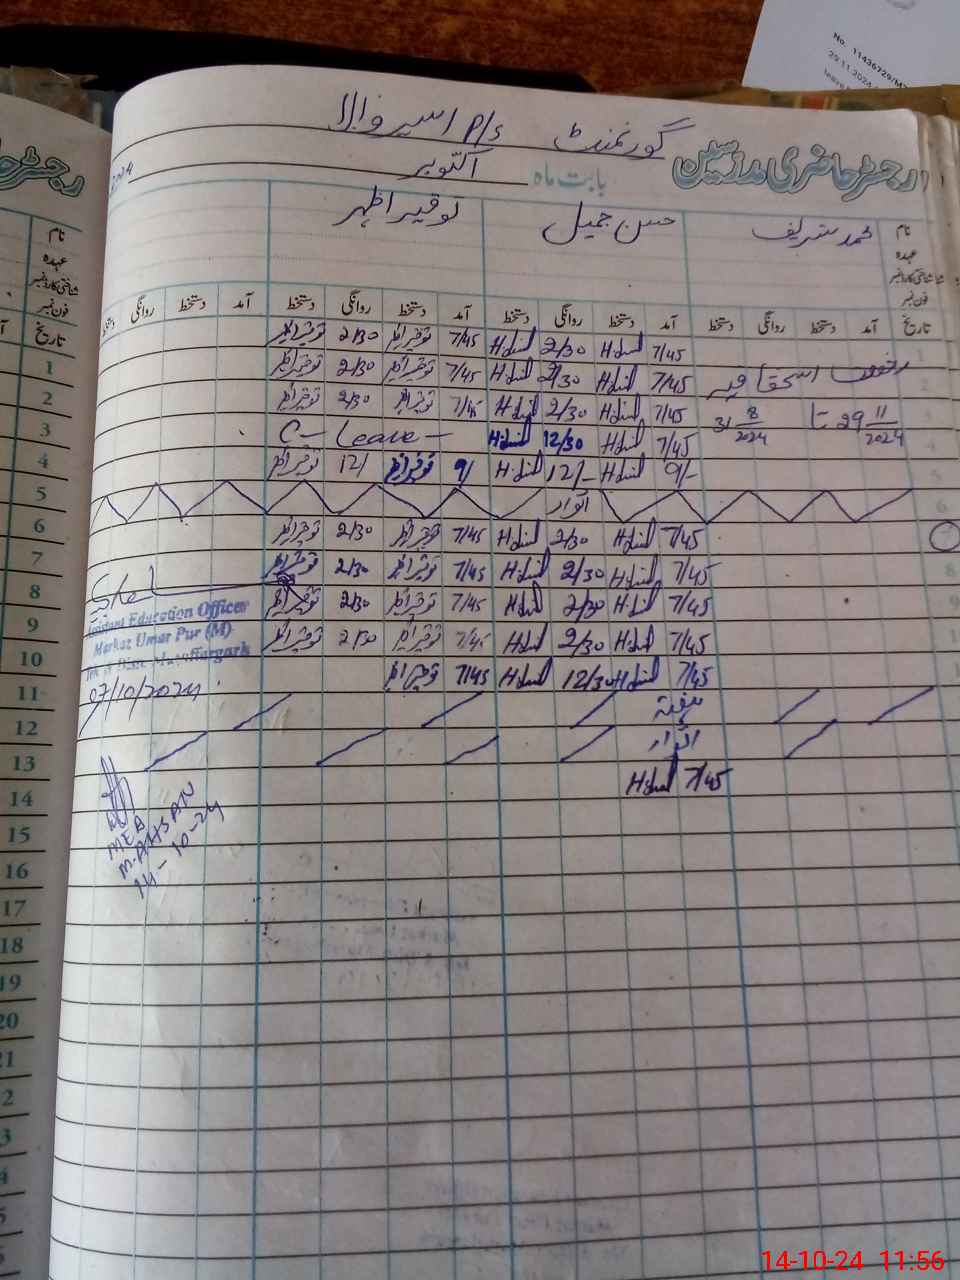 No. 11436729/M
29.11.2024
رجسٹر حاضری مدرسین گورنمنٹ P/s اسیر والا
بابت ماہ اکتوبر 2024
نام محمد شریف حسن جمیل توقیر اظہر
عہدہ
شناختی کارڈ نمبر
فون نمبر
تاریخ آمد دستخط روانگی دستخط آمد دستخط روانگی دستخط آمد دستخط روانگی دستخط آمد دستخط روانگی دستخط
1 7/45 2/30 7/45 توقیر اظہر 2/30 توقیر اظہر
2 رخصت استحقاقیہ 7/45 2/30 7/45 توقیر اظہر 2/30 توقیر اظہر
3 29 11/2024 تا 31 8/2024 7/45 2/30 7/45 توقیر اظہر 2/30 توقیر اظہر
4 7/45 12/30 C-Leave-
5 9/- 12/- 9/ توقیر اظہر 12/ توقیر اظہر
6 اتوار
7 7/45 2/30 7/45 توقیر اظہر 2/30 توقیر اظہر
8 7/45 2/30 7/45 توقیر اظہر 2/30 توقیر اظہر
9 7/45 2/30 7/45 توقیر اظہر 2/30 توقیر اظہر
10 7/45 2/30 7/45 توقیر اظہر 2/30 توقیر اظہر
11 7/45 12/30 7/45 توقیر اظہر
12 ہفتہ
13 اتوار
14 7/45
15
16
17
18
19
20
Assistant Education Officer
Markaz Umar Pur (M)
Teh & Distt. Muzaffargarh
07/10/2024
MEA
M. AHSAN
14-10-24
14-10-24 11:56